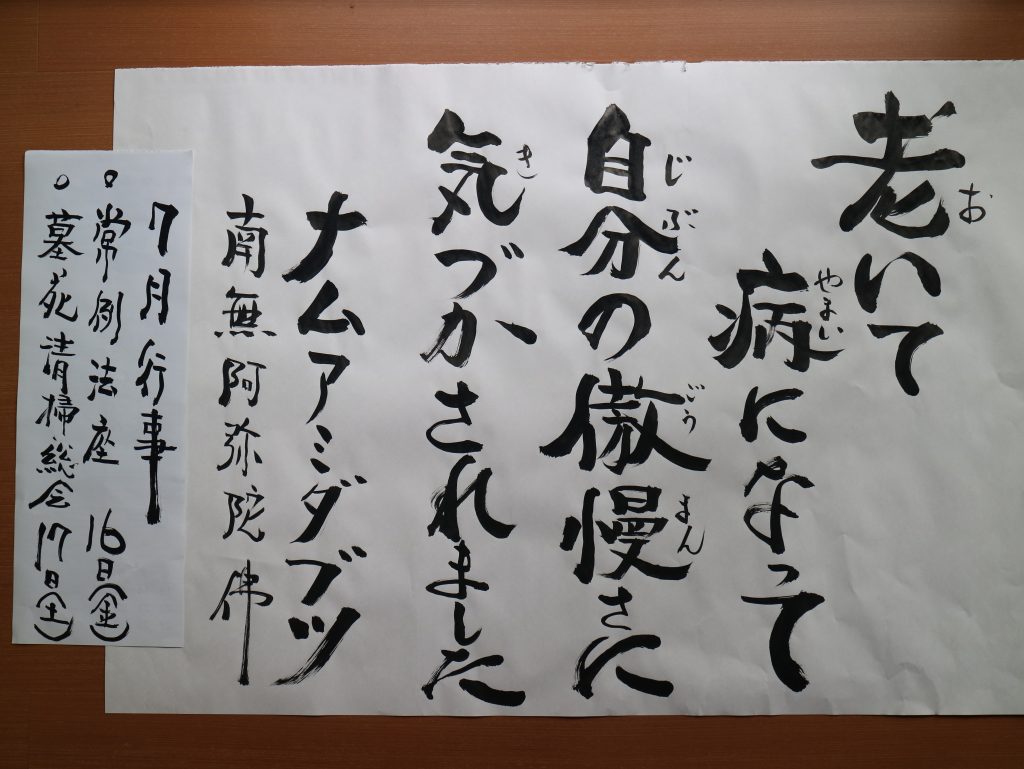 老いて
お
病になって
やまい
自分の傲慢さに
じぶん ごうまん
気づかされました
き
ナムアミダブツ
南無阿弥陀佛
7月行事
○常例法座 16日(金)
○墓苑清掃総会 17日(土)